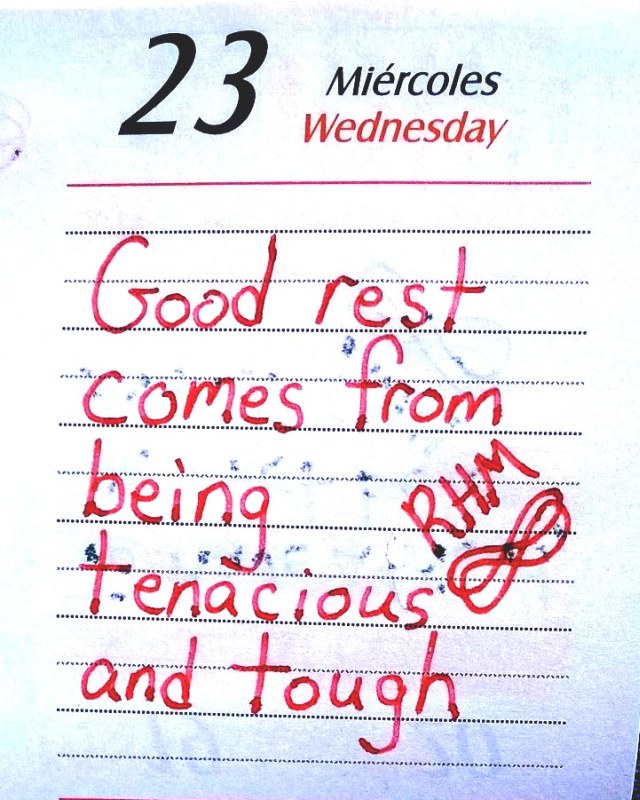 23 Miércoles
Wednesday
Good rest
comes from
being
RHM
tenacious
and tough